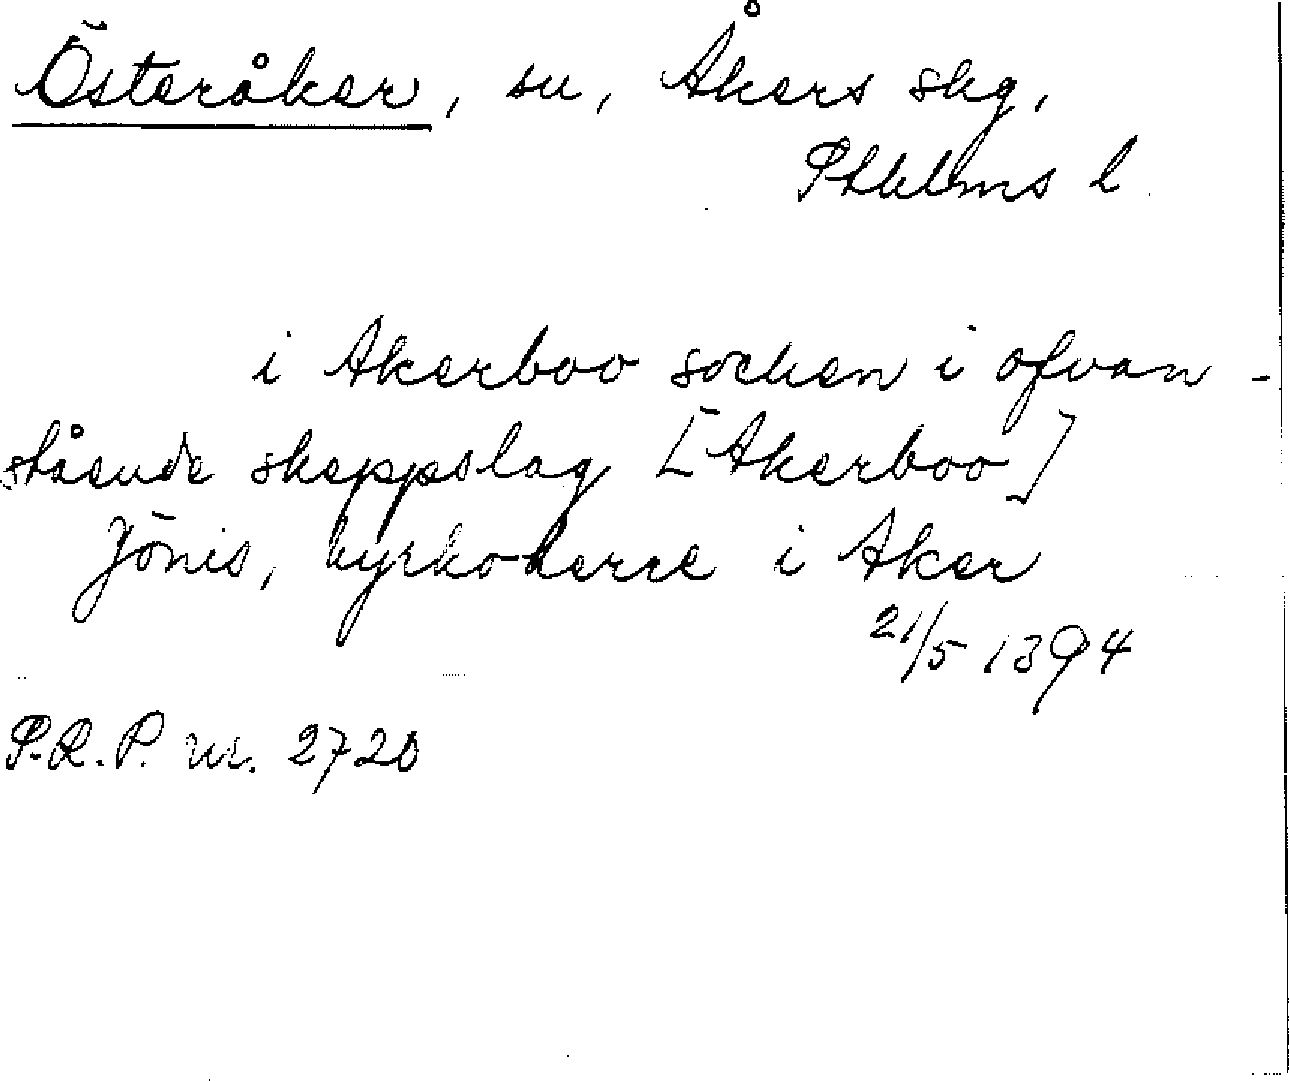 Österåker, sn, Åkers skg,
Sthlms l.
i Akerboo socken i ofvan-
stående skeppslag [Akerboo]
Jönis, kyrkoherre i Aker
21/5 1394
S.R.P. nr. 2720